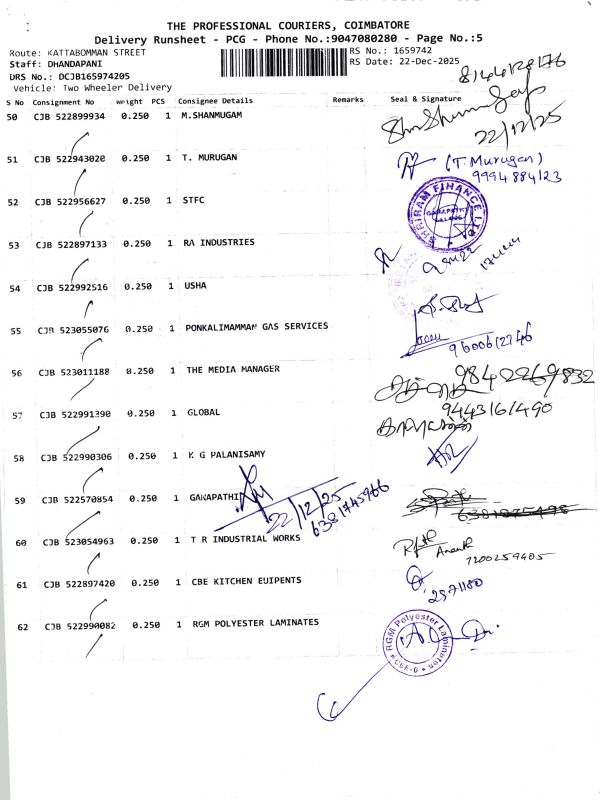 THE PROFESSIONAL COURIERS, COIMBATORE
Delivery Runsheet - PCG - Phone No.:9047080280 - Page No.:5
Route: KATTABOMMAN STREET
RS No.: 1659742
Staff: DHANDAPANI
RS Date: 22-Dec-2025
DRS No.: DCJB165974205
Vehicle: Two Wheeler Delivery
8144128176
S No Consignment No Weight PCS Consignee Details Remarks Seal & Signature
50 CJB 522899934 0.250 1 M.SHANMUGAM
22/12/25
51 CJB 522943020 0.250 1 T. MURUGAN
(T.Murugan)
9994884123
52 CJB 522956627 0.250 1 STFC
SHRIRAM FINANCE LTD
53 CJB 522897133 0.250 1 RA INDUSTRIES
54 CJB 522992516 1 USHA
0.250
55 CJB 523055076 0.250 1 PONKALIMAMMAN GAS SERVICES
9600612746
56 CJB 523011188 0.250 1 THE MEDIA MANAGER
57 CJB 522991390 0.250 1 GLOBAL
9443161490
58 CJB 522990306 0.250 1 K G PALANISAMY
59 CJB 522570854 0.250 1 GANAPATHI
22/12/25
6381745966
60 CJB 523054963 0.250 1 T R INDUSTRIAL WORKS
Ananth
7200259405
61 CJB 522897420 0.250 1 CBE KITCHEN EUIPENTS
2571180
62 CJB 522990082 0.250 1 RGM POLYESTER LAMINATES
RGM Polyester Laminates
CBE-6